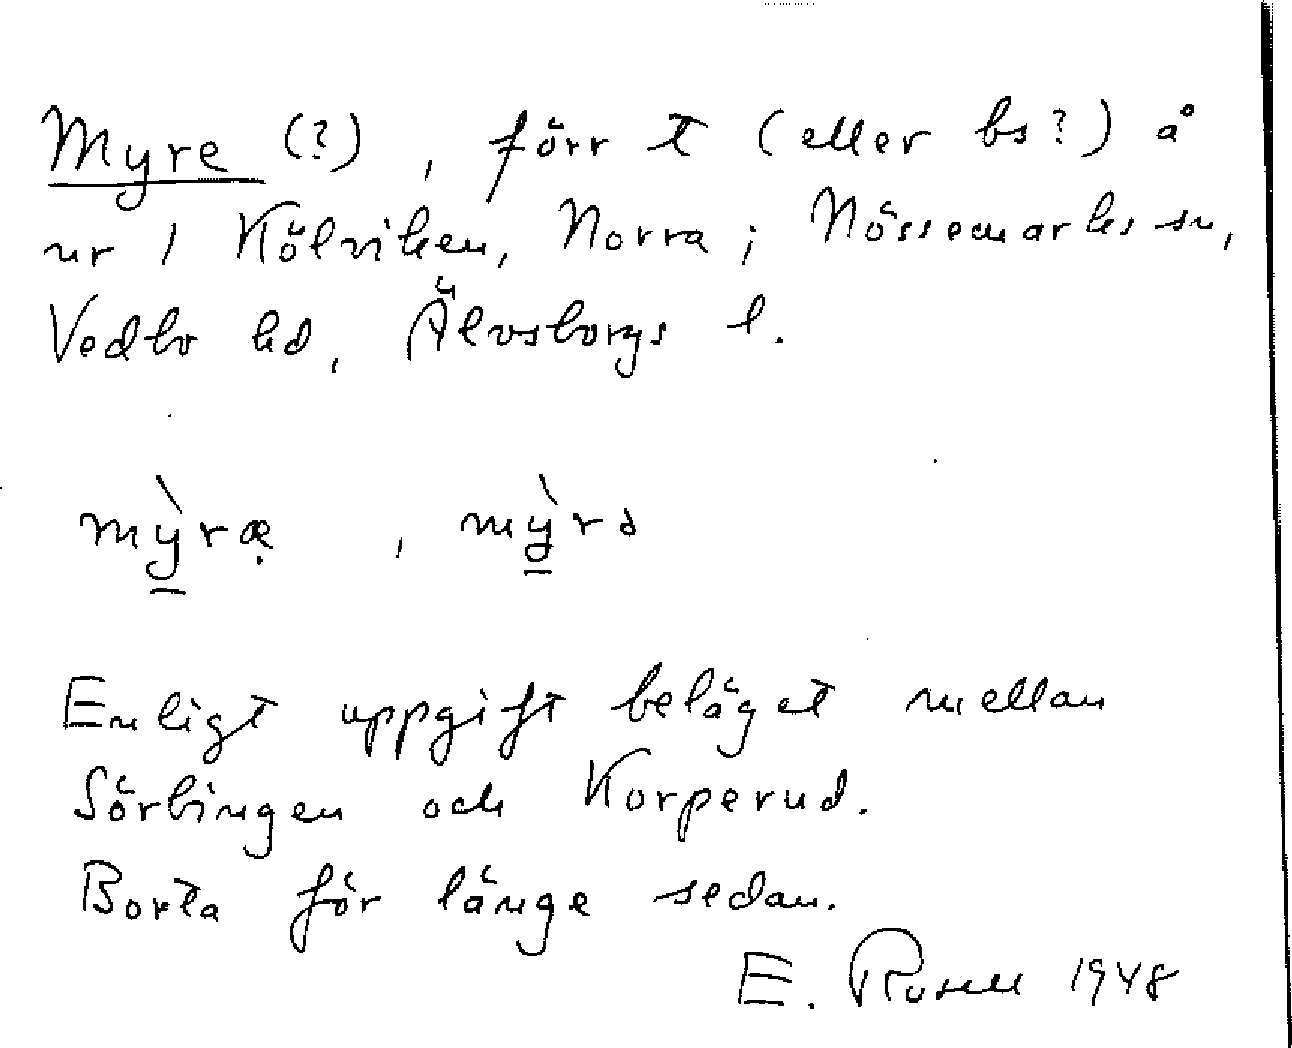 Myre (?), förr t (eller bs?) å
nr 1 Kölviken, Norra; Nössemarks sn,
Vedbo hd, Älvsborgs l.
mỳ̱ræ̣, mỳ̱rə
Enligt uppgift beläget mellan
Sörbingen och Korperud.
Borta för länge sedan.
E. Rosell 1948